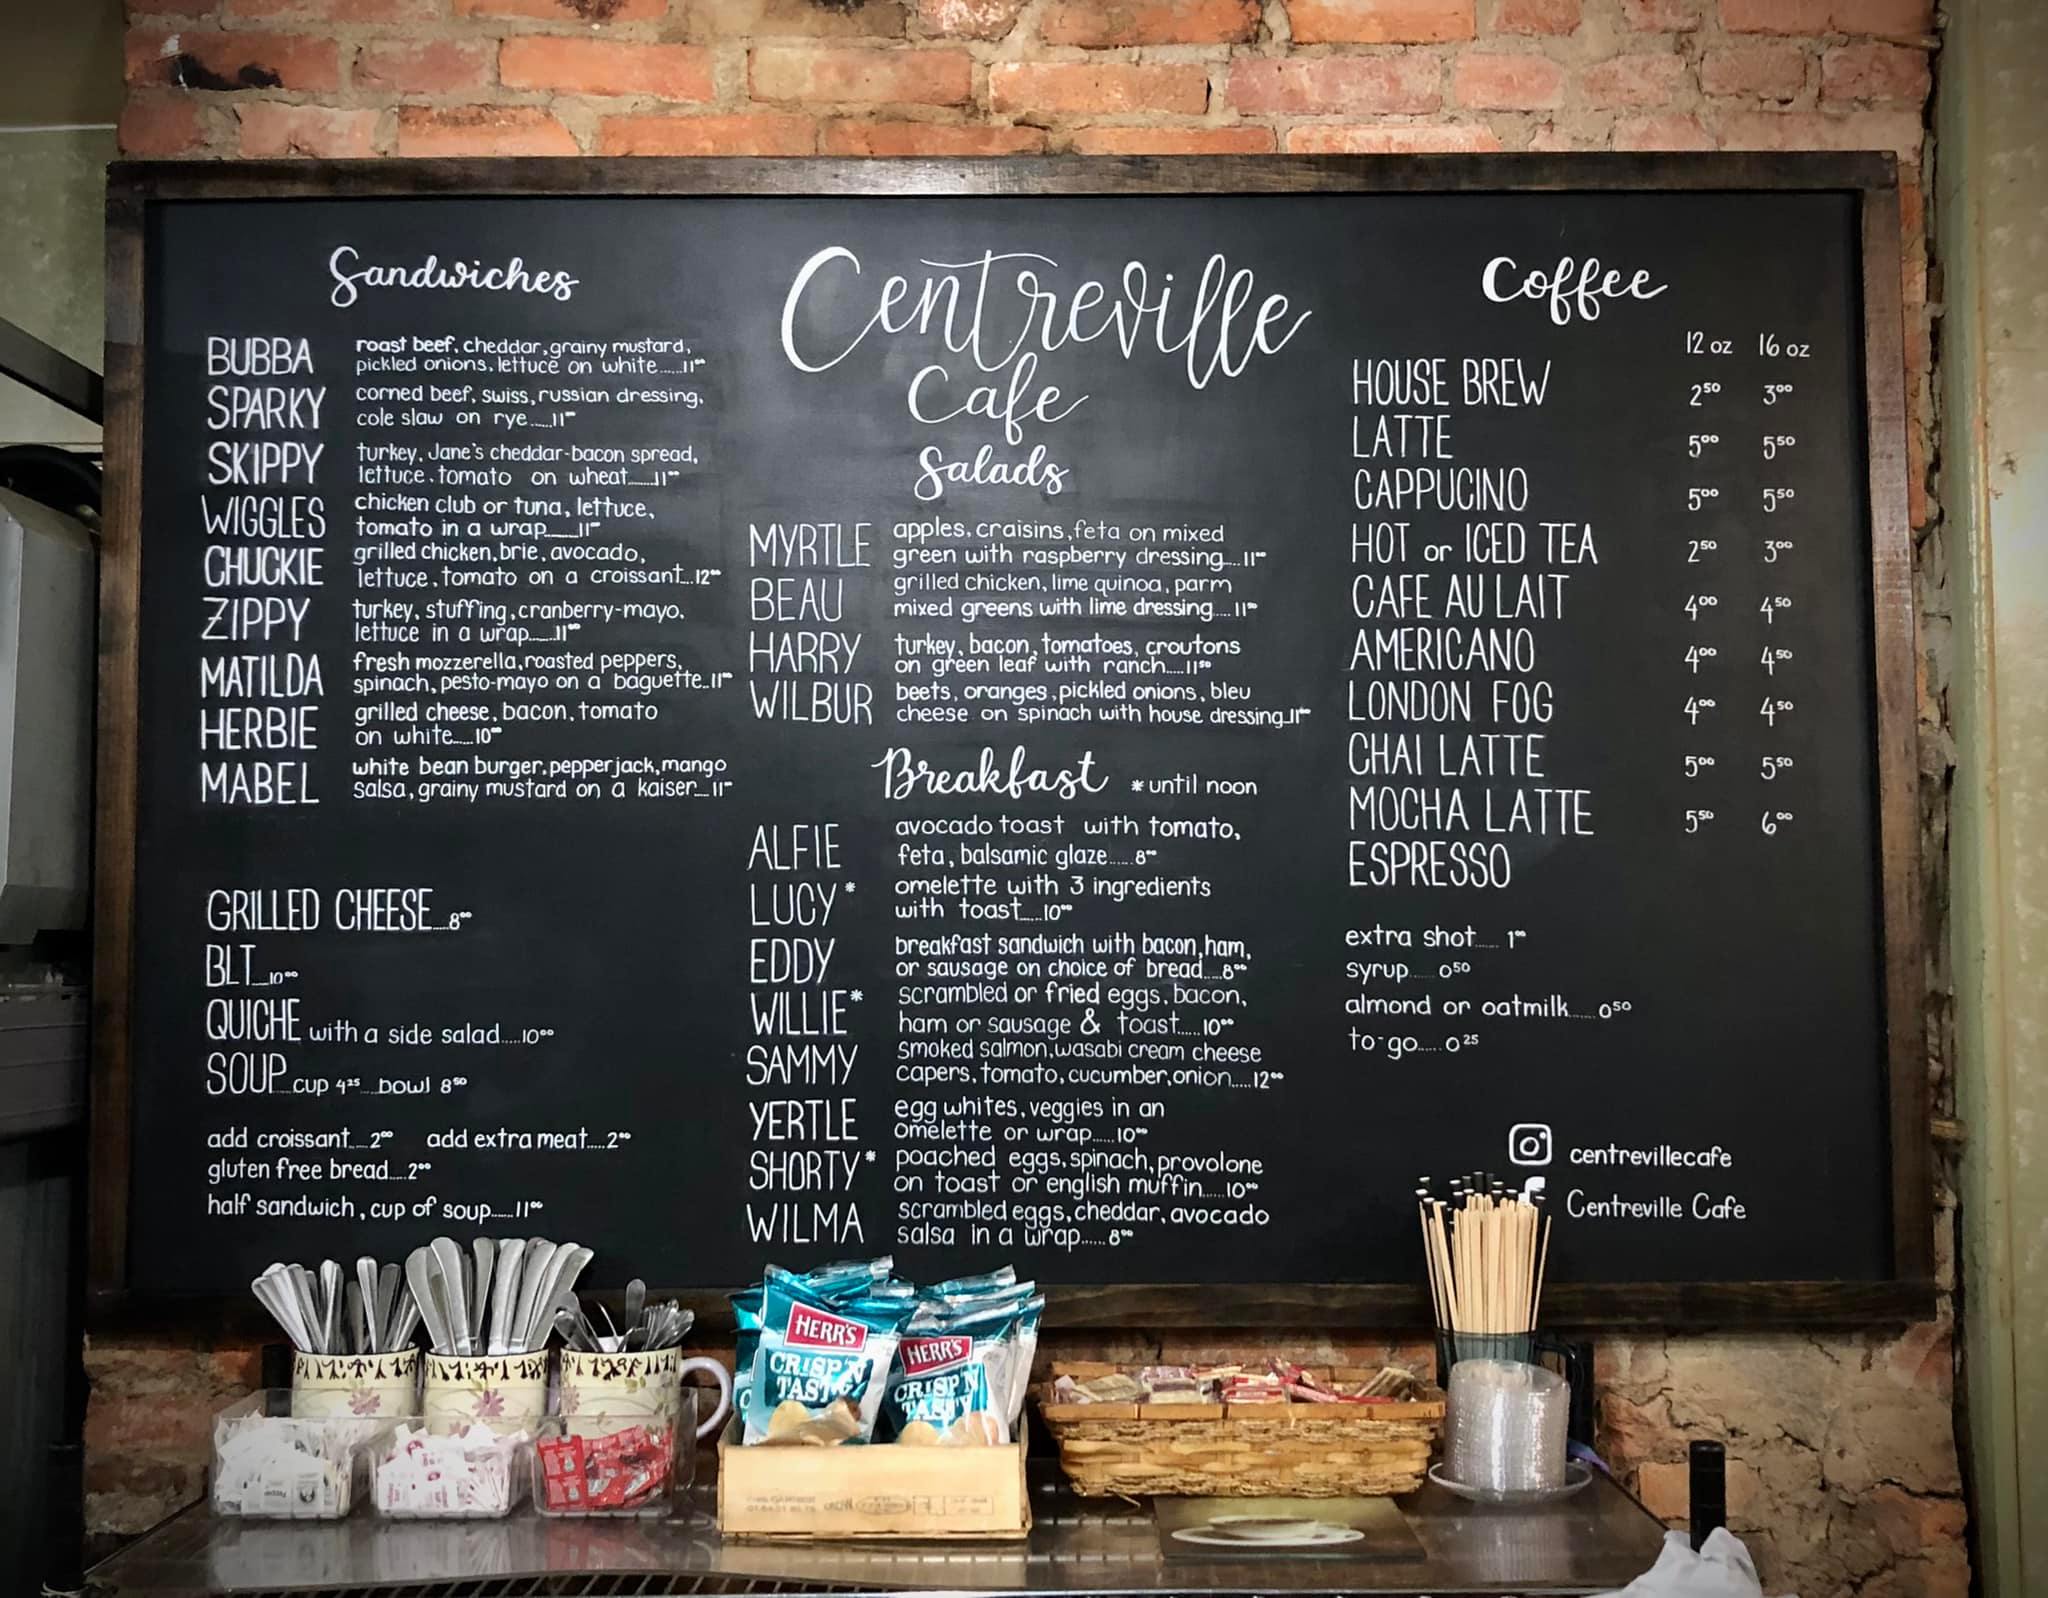 Sandwiches
BUBBA roast beef, cheddar, grainy mustard,
pickled onions, lettuce on white......11⁰⁰
SPARKY corned beef, swiss, russian dressing,
cole slaw on rye......11⁰⁰
SKIPPY turkey, Jane's cheddar-bacon spread,
lettuce, tomato on wheat......11⁰⁰
WIGGLES chicken club or tuna, lettuce,
tomato in a wrap......11⁰⁰
CHUCKIE grilled chicken, brie, avocado,
lettuce, tomato on a croissant...12⁰⁰
ZIPPY turkey, stuffing, cranberry-mayo,
lettuce in a wrap......11⁰⁰
MATILDA fresh mozzerella, roasted peppers,
spinach, pesto-mayo on a baguette..11⁰⁰
HERBIE grilled cheese, bacon, tomato
on white......10⁰⁰
MABEL white bean burger, pepperjack, mango
salsa, grainy mustard on a kaiser...11⁰⁰
GRILLED CHEESE....8⁰⁰
BLT....10⁰⁰
QUICHE with a side salad.....10⁰⁰
SOUP...cup 4²⁵...bowl 8⁵⁰
add croissant....2⁰⁰ add extra meat....2⁰⁰
gluten free bread....2⁰⁰
half sandwich, cup of soup......11⁰⁰
Centreville
Cafe
Salads
MYRTLE apples, craisins, feta on mixed
green with raspberry dressing....11⁰⁰
BEAU grilled chicken, lime quinoa, parm
mixed greens with lime dressing....11⁰⁰
HARRY turkey, bacon, tomatoes, croutons
on green leaf with ranch.....11⁵⁰
WILBUR beets, oranges, pickled onions, bleu
cheese on spinach with house dressing..11⁰⁰
Breakfast *until noon
ALFIE avocado toast with tomato,
feta, balsamic glaze......8⁰⁰
LUCY* omelette with 3 ingredients
with toast.....10⁰⁰
EDDY breakfast sandwich with bacon, ham,
or sausage on choice of bread....8⁰⁰
WILLIE* scrambled or fried eggs, bacon,
ham or sausage & toast.....10⁰⁰
SAMMY smoked salmon, wasabi cream cheese
capers, tomato, cucumber, onion.....12⁰⁰
YERTLE egg whites, veggies in an
omelette or wrap.....10⁰⁰
SHORTY* poached eggs, spinach, provolone
on toast or english muffin.....10⁰⁰
WILMA scrambled eggs, cheddar, avocado
salsa in a wrap......8⁰⁰
Coffee
12 oz 16 oz
HOUSE BREW 2⁵⁰ 3⁰⁰
LATTE 5⁰⁰ 5⁵⁰
CAPPUCINO 5⁰⁰ 5⁵⁰
HOT or ICED TEA 2⁵⁰ 3⁰⁰
CAFE AU LAIT 4⁰⁰ 4⁵⁰
AMERICANO 4⁰⁰ 4⁵⁰
LONDON FOG 4⁰⁰ 4⁵⁰
CHAI LATTE 5⁰⁰ 5⁵⁰
MOCHA LATTE 5⁵⁰ 6⁰⁰
ESPRESSO
extra shot...... 1⁰⁰
syrup...... 0⁵⁰
almond or oatmilk......0⁵⁰
to-go.....0²⁵
centrevillecafe
Centreville Cafe
HERR'S
CRISP'N
TASTY
HERR'S
CRISP'N
TASTY